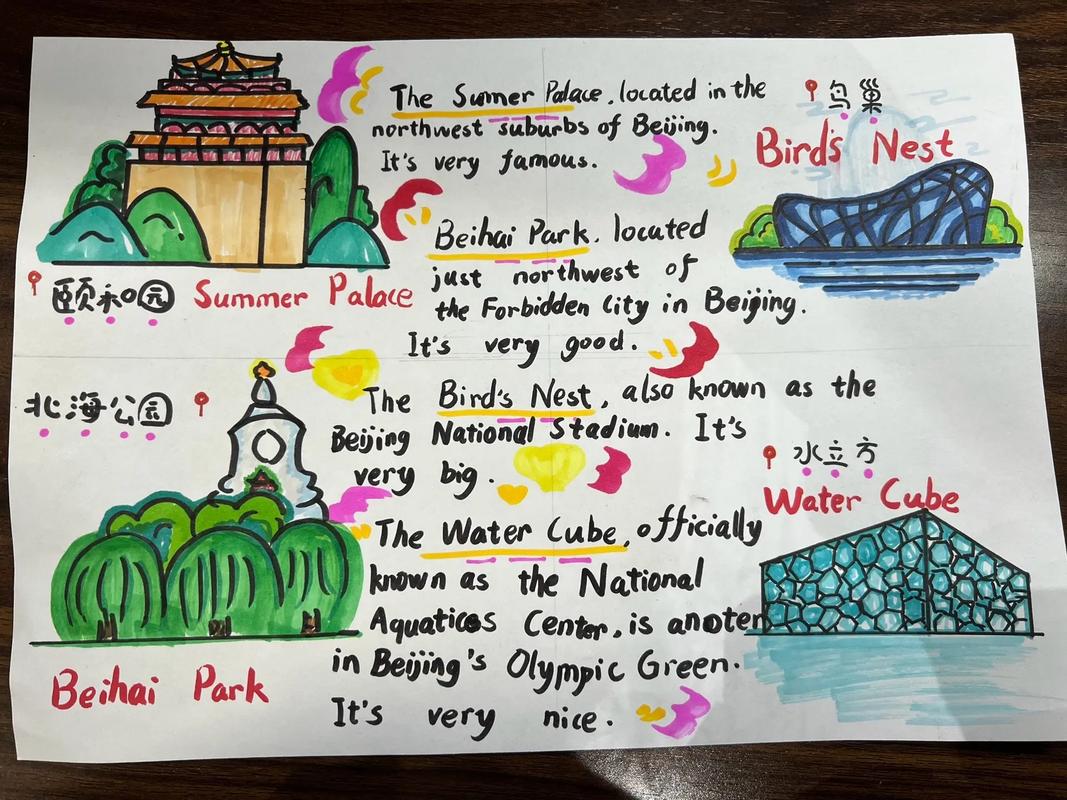 The Sumer Palace, located in the
northwest suburbs of Beijing.
It's very famous.
鸟巢
Bird's Nest
颐和园 Summer Palace
Beihai Park. located
just northwest of
the Forbidden City in Beijing.
It's very good.
北海公园
The Bird's Nest, also known as the
Beijing National Stadium. It's
very big.
水立方
Water Cube
The Water Cube, officially
known as the National
Aquaticos Center, is anoter
in Beijing's Olympic Green.
It's very nice.
Beihai Park